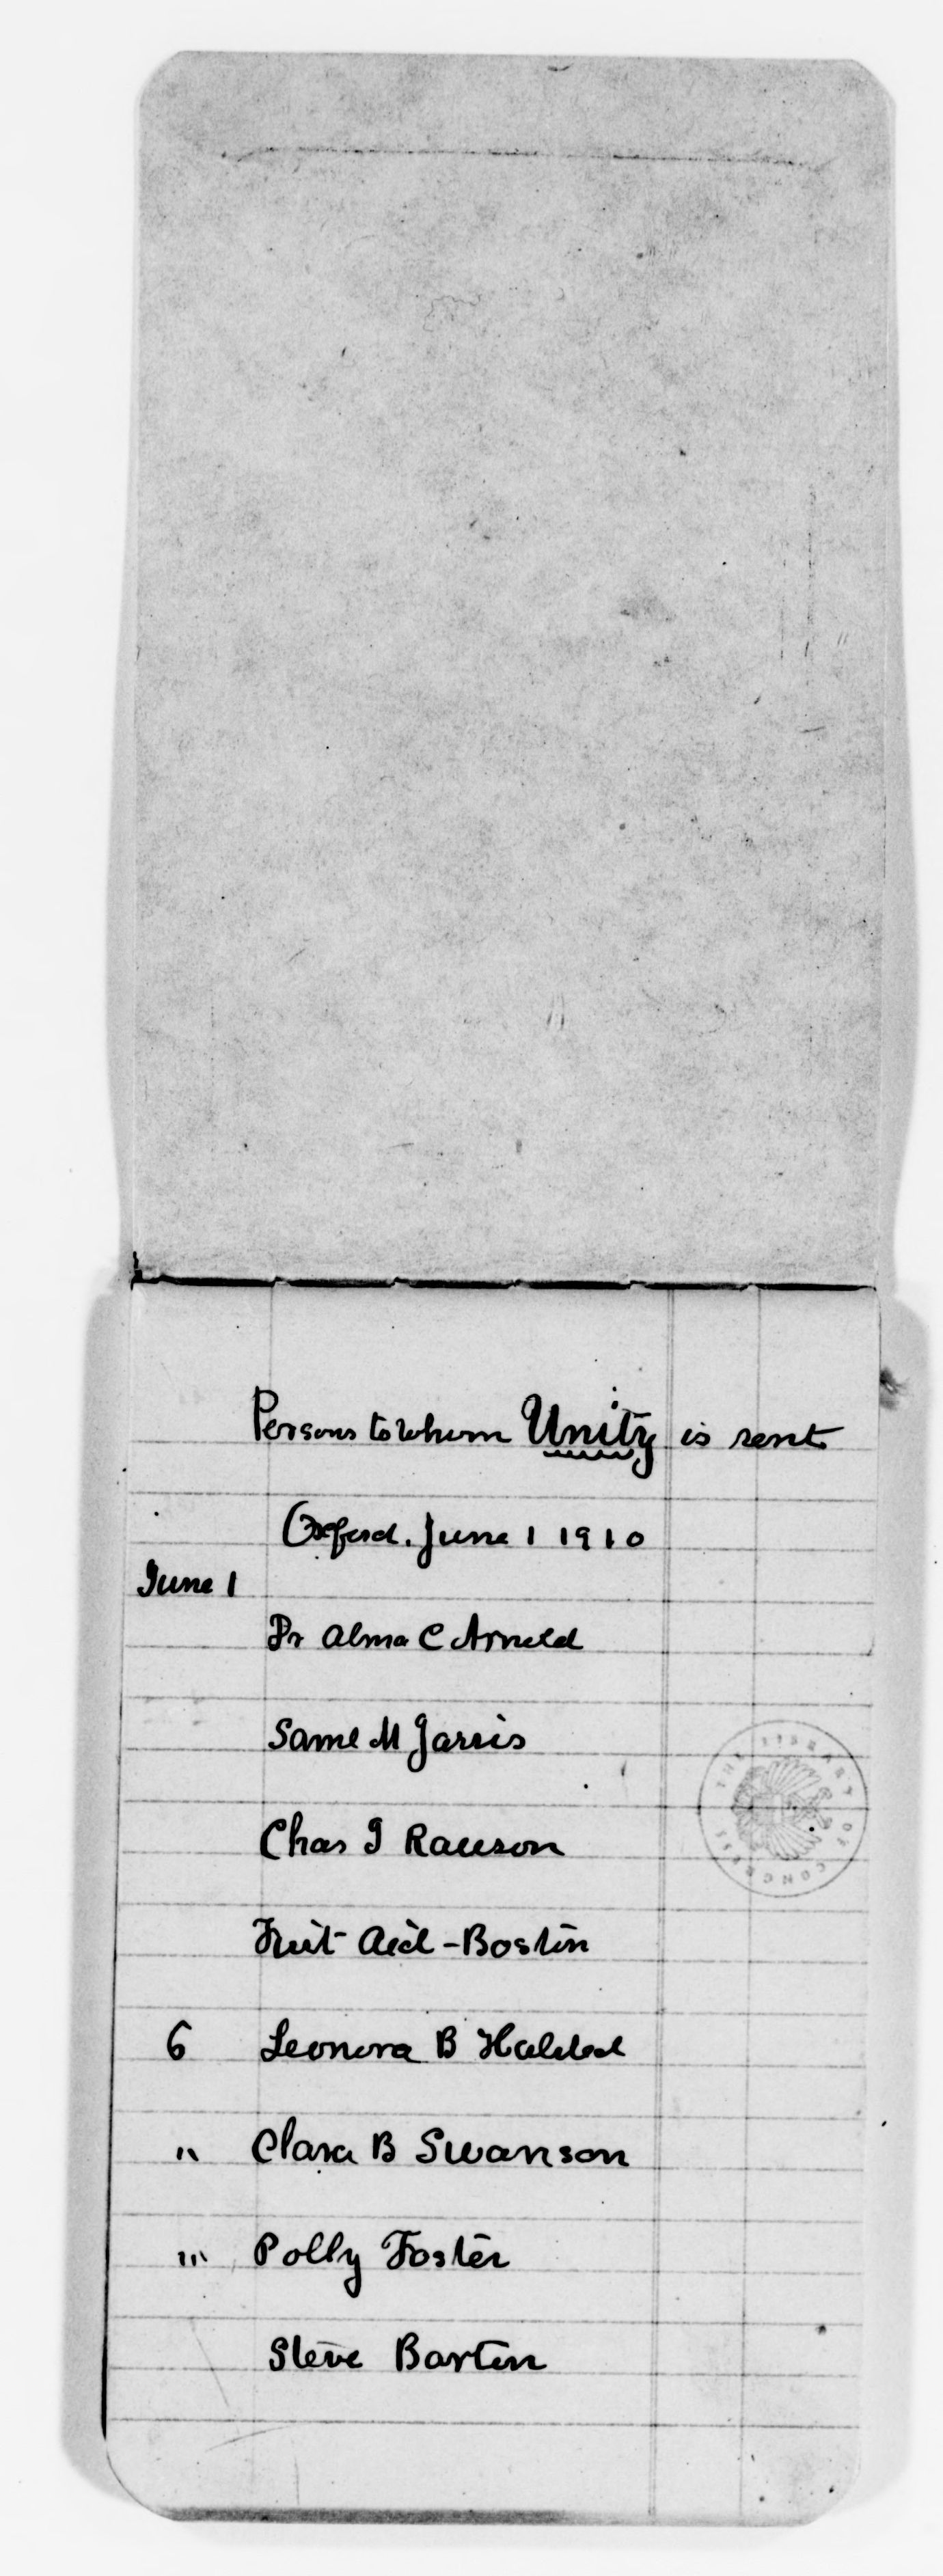 Persons to whom Unity is sent
Oxford. June 1 1910
June 1
Dr Alma C Arnold
Saml M Jarvis
Chas I Rawson
First Aid - Boston
6 Leonora B Halsted
" Clara B Swanson
"' Polly Foster
Steve Barton
THE LIBRARY OF CONGRESS